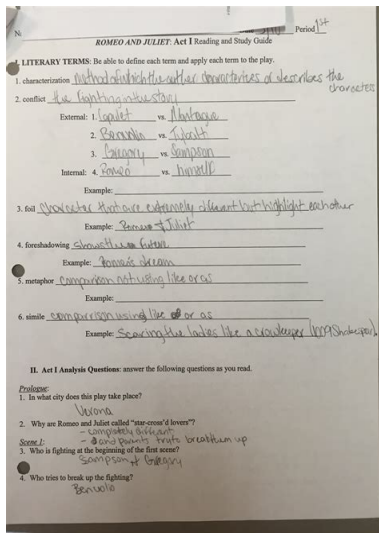 N Period 1st
ROMEO AND JULIET: Act I Reading and Study Guide
I. LITERARY TERMS: Be able to define each term and apply each term to the play.
1. characterization Method of which the author characterizes or describes the
characters
2. conflict the fighting in the story
External: 1. Capulet vs. Montague
2. Benvolio vs. Tybalt
3. Gregory vs. Sampson
Internal: 4. Romeo vs. himself
Example:
3. foil Character that are extremely different but highlight each other
Example: Romeo & Juliet
4. foreshadowing shows the future
Example: Romeo's dream
5. metaphor comparison not using like or as
Example:
6. simile comparrison using like or as
Example: Scaring the ladies like a crowkeeper (1009 Shakespear)
II. Act I Analysis Questions: answer the following questions as you read.
Prologue:
1. In what city does this play take place?
Verona
2. Why are Romeo and Juliet called "star-cross'd lovers"?
- completely different
- and parents try to break them up
Scene 1:
3. Who is fighting at the beginning of the first scene?
Sampson & Gregory
4. Who tries to break up the fighting?
Benvolio